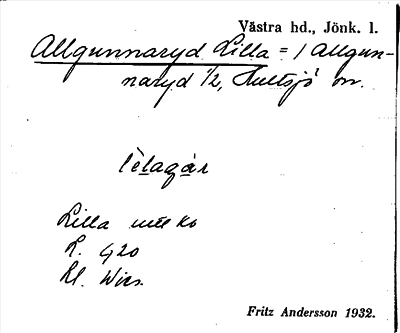 Västra hd., Jönk. l.
Allgunnaryd Lilla = / Allgun-
naryd 1/2, Hultsjö sn.
lèlagár
Lilla
L. G20
Kl. Wiss.
Fritz Andersson 1932.